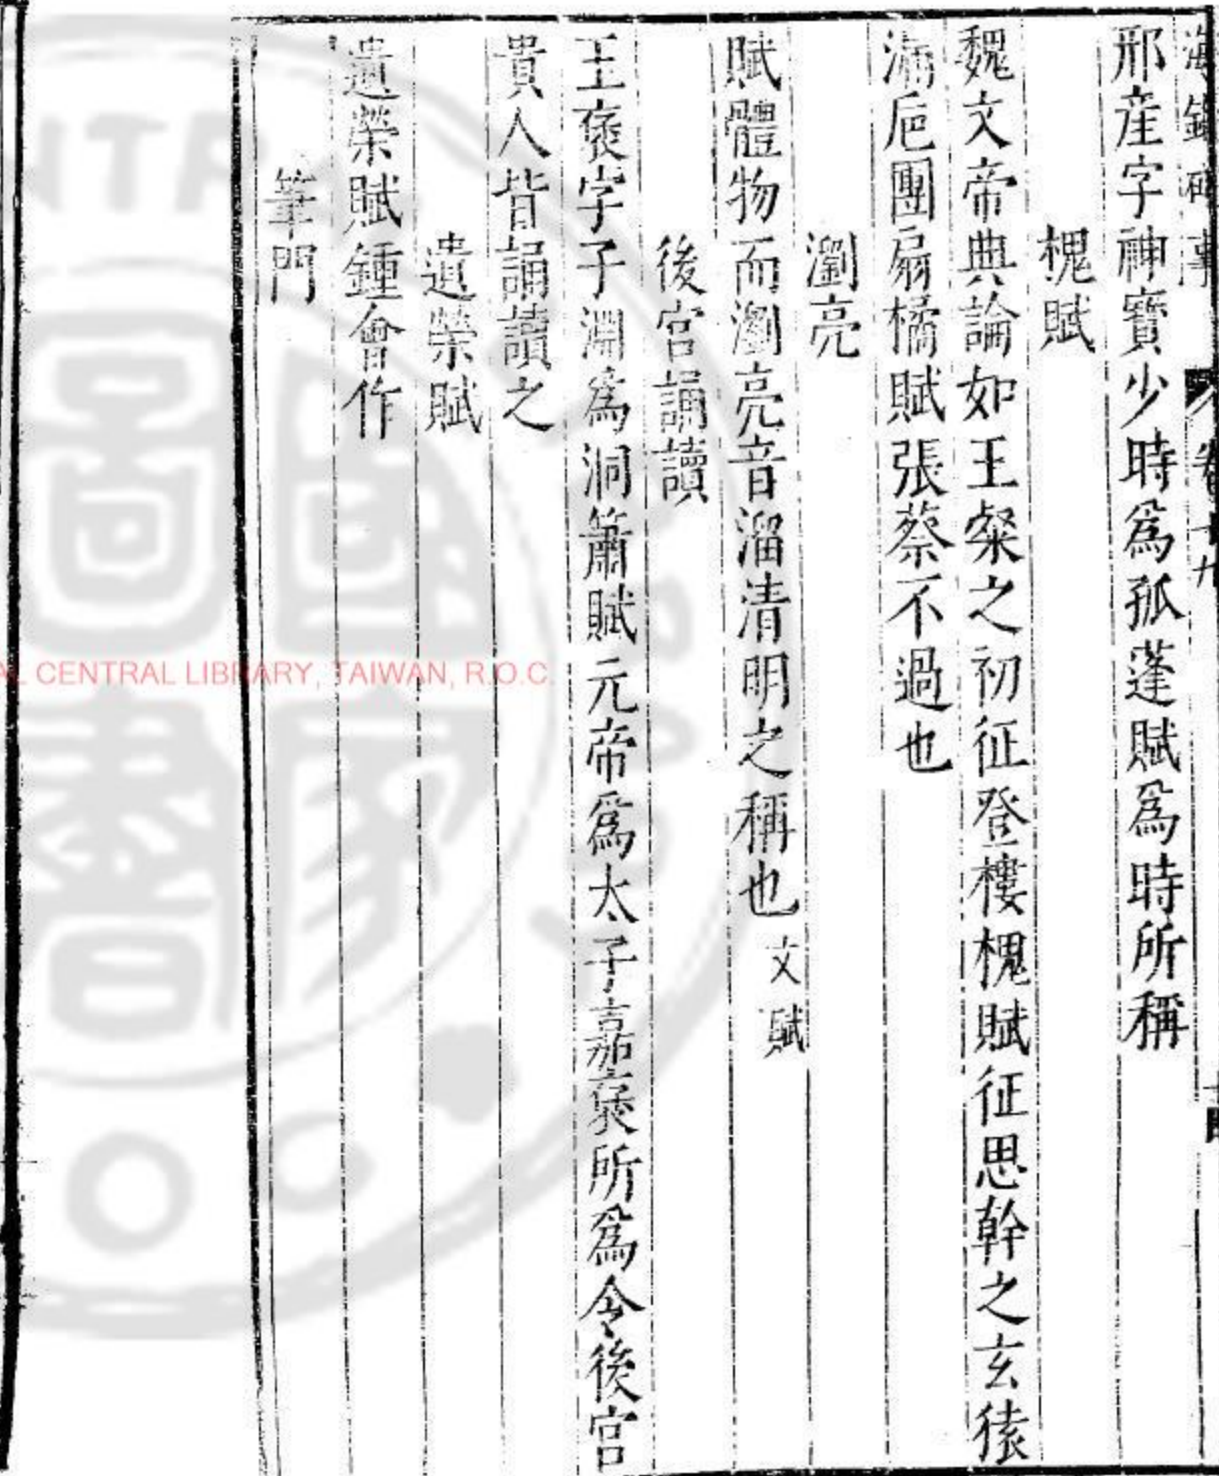 海錄碎事 卷十九
邢産字神寶少時爲孤蓬賦爲時所稱
槐賦
魏文帝典論如王粲之初征登樓槐賦征思幹之玄猿
漏巵團扇橘賦張蔡不過也
瀏亮
賦體物而瀏亮音溜清明之稱也文賦
後宮誦讀
王褒字子淵爲洞簫賦元帝爲太子嘉褒所爲令後宮
貴人皆誦讀之
遺榮賦
遺榮賦鍾會作
筆門
AL CENTRAL LIBRARY, TAIWAN, R.O.C.